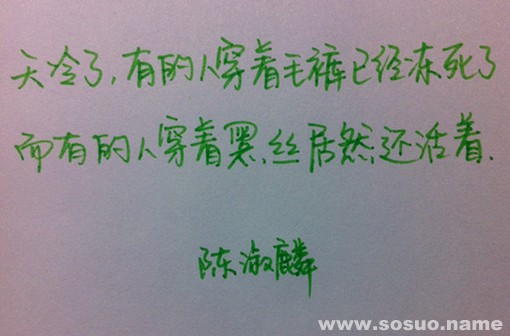 天冷了,有的人穿着毛裤已经冻死了
而有的人穿着黑丝居然还活着.
陈淑麟
www.sosuo.name